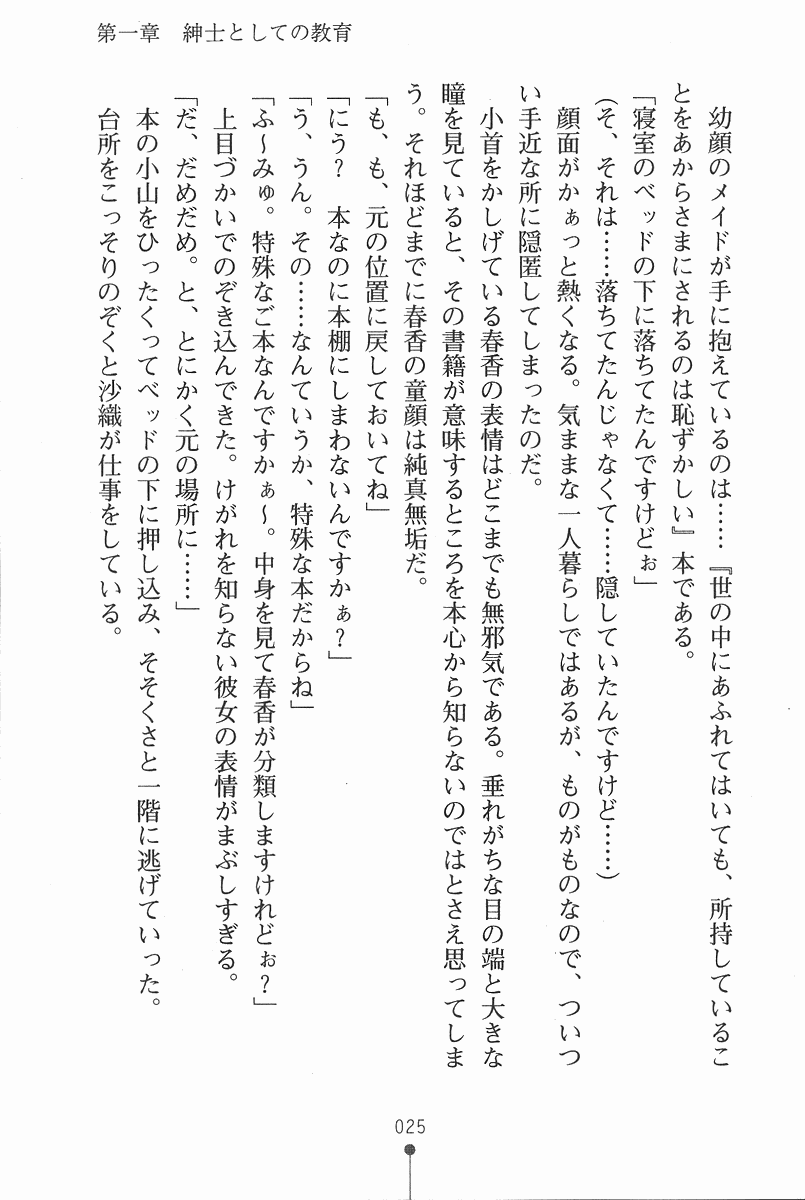 第一章　紳士としての教育
　幼顔のメイドが手に抱えているのは……『世の中にあふれてはいても、所持しているこ
とをあからさまにされるのは恥ずかしい』本である。
「寝室のベッドの下に落ちてたんですけどぉ」
(そ、それは……落ちてたんじゃなくて……隠していたんですけど……)
　顔面がかぁっと熱くなる。気ままな一人暮らしではあるが、ものがものなので、ついつ
い手近な所に隠匿してしまったのだ。
　小首をかしげている春香の表情はどこまでも無邪気である。垂れがちな目の端と大きな
瞳を見ていると、その書籍が意味するところを本心から知らないのではとさえ思ってしま
う。それほどまでに春香の童顔は純真無垢だ。
「も、も、元の位置に戻しておいてね」
「にう？　本なのに本棚にしまわないんですかぁ？」
「う、うん。その……なんていうか、特殊な本だからね」
「ふ～みゅ。特殊なご本なんですかぁ～。中身を見て春香が分類しますけれどぉ？」
　上目づかいでのぞき込んできた。けがれを知らない彼女の表情がまぶしすぎる。
「だ、だめだめ。と、とにかく元の場所に……」
　本の小山をひったくってベッドの下に押し込み、そそくさと一階に逃げていった。
　台所をこっそりのぞくと沙織が仕事をしている。
025